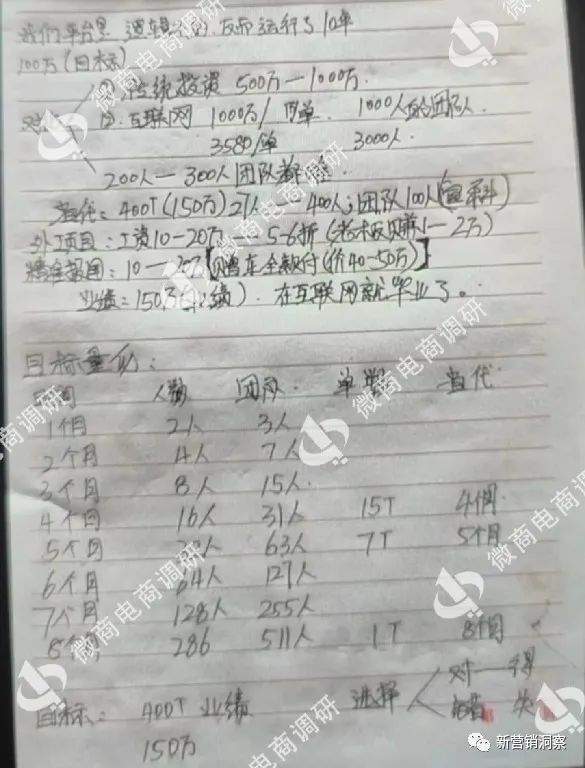 我们平台 逻辑 运行了10年
100万(目标)
对 ①传统投资 500万—1000万
②互联网 1000万/ 单 1000人 团队
3580/单 3000人
200人—300人团队
当代:400T(150万)27人—400人;团队100人
外工项目:工资10-20万—5-6折(老板 1—2万)
精准 :10—20万【赠车全款付(价40-50万)】
业绩:150万( 绩).在互联网就毕业了。
目标量化:
时间 人数 团队 单数 当代
1个月 2人 3人
2个月 4人 7人
3个月 8人 15人
4个月 16人 31人 15T 4个月
5个月 人 63人 7T 5个月
6个月 64人 127人
7个月 128人 255人
8个月 286 511人 1T 8个月
目标:400T业绩 选择 对—得
150万 错 失
微商电商调研
微商电商调研
微商电商调研
微商电商调研
微商电商调研
微商电商调研
新营销洞察